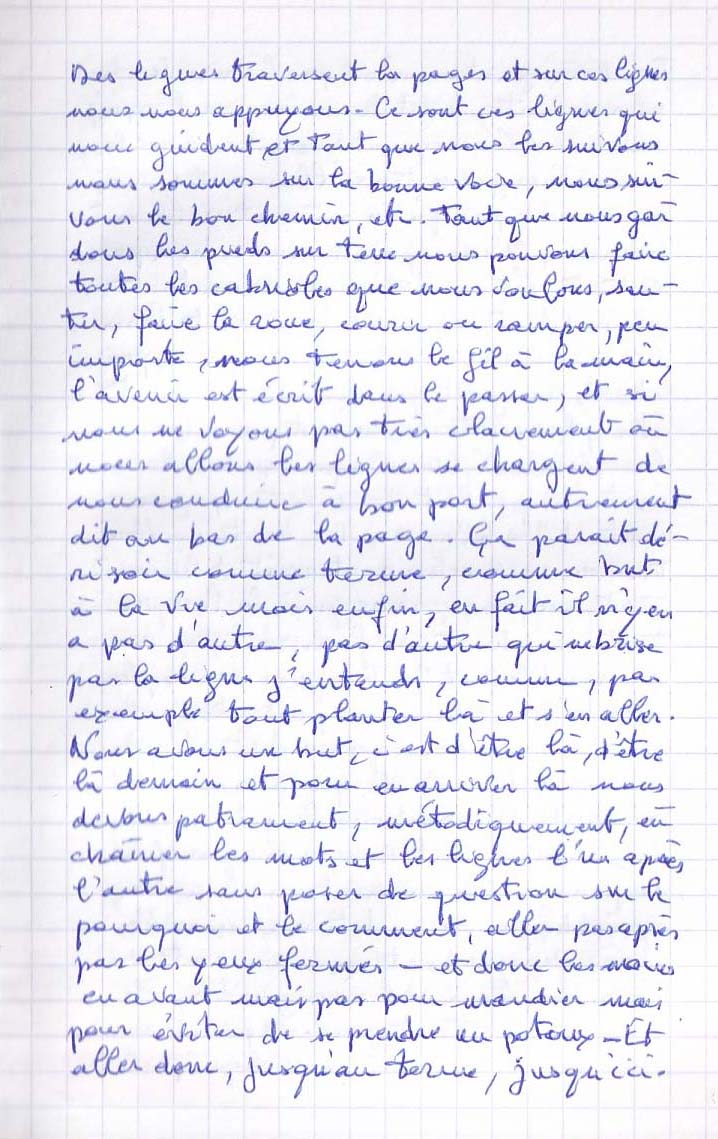 Des lignes traversent la pages et sur ces lignes
nous nous appuyons. Ce sont ces lignes qui
nous guident et tant que nous les suivons
nous sommes sur la bonne voie, nous sui-
vons le bon chemin, etc. Tant que nous gar-
dons les pieds sur terre nous pouvons faire
toutes les cabrioles que nous voulons, sau-
ter, faire la roue, courir ou ramper, peu
importe, nous tenons le fil à la main,
l'avenir est écrit dans le passer, et si
nous ne voyons pas très clairement où
nous allons les lignes se chargent de
nous conduire à bon port, autrement
dit au bas de la page. Ça parait dé-
risoir comme terme, comme but
à la vie mais enfin, en fait il n'y en
a pas d'autre, pas d'autre qui ne brise
pas la ligne j'entends, comme, par
exemple tout planter là et s'en aller.
Nous avons un but, c'est d'être là, d'être
là demain et pour en arriver là nous
devons patiament, métodiquement, en-
chainer les mots et les lignes l'un après
l'autre sans poser de question sur le
pourquoi et le comment, aller pas après
pas les yeux fermés — et donc les mains
en avant mais pas pour mandier mais
pour éviter de se prendre un poteaux — Et
aller donc, jusqu'au terme, jusqu'ici.